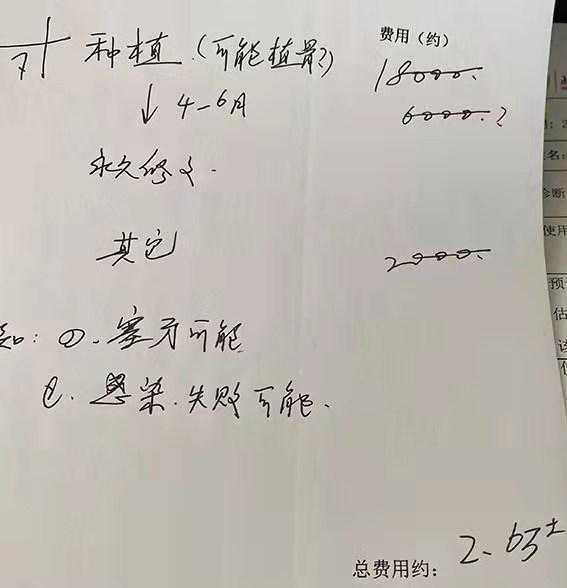 费用（约）
7 种植（可能植骨?） 18000.
↓ 4-6月 6000.?
永久修复.
其它 2000.
知: ①. 塞牙可能
②. 感染.失败可能.
总费用约: 2.6万±
诊断
使用
预
估